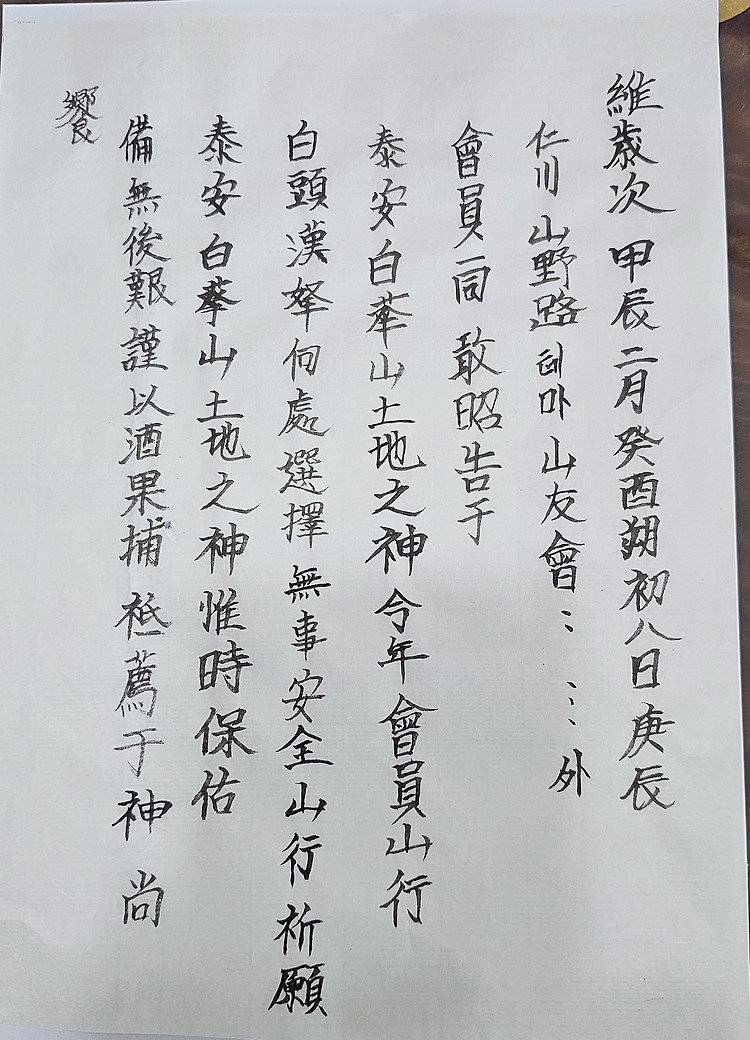 維歲次 甲辰 二月 癸酉朔 初八日 庚辰
仁川 山野路 테마 山友會 : ⋯ 外
會員一同 敢昭告于
泰安白華山土地之神 今年 會員山行
白頭漢拏何處選擇 無事安全山行祈願
泰安白華山土地之神惟時保佑
備無後艱謹以酒果捕 祗薦于神 尚
饗